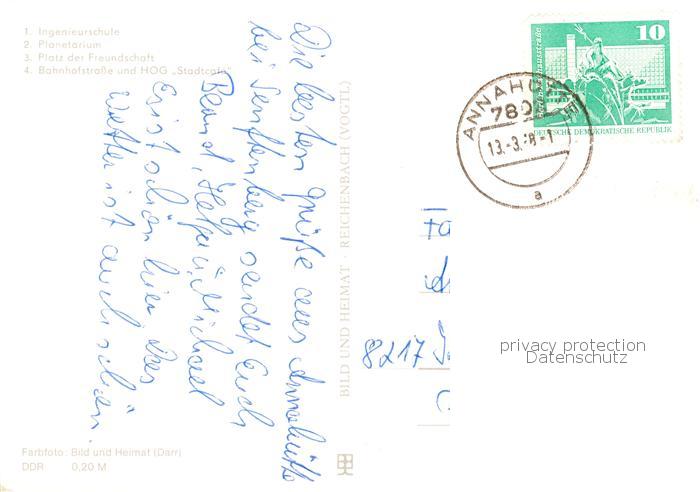 1. Ingenieurschule
2. Planetarium
3. Platz der Freundschaft
4. Bahnhofstraße und HOG „Stadtcafé"
Die besten Grüße aus Annahütte
bei Senftenberg sendet Euch
Bernd, Helga u. Michael
Es ist schön hier. Das
Wetter ist auch schön.
BILD UND HEIMAT · REICHENBACH (VOGTL)
Farbfoto: Bild und Heimat (Darr)
DDR 0,20 M
10
DEUTSCHE DEMOKRATISCHE REPUBLIK
ANNAHÜTTE
13.-3.
a
Fa
8217
privacy protection
Datenschutz